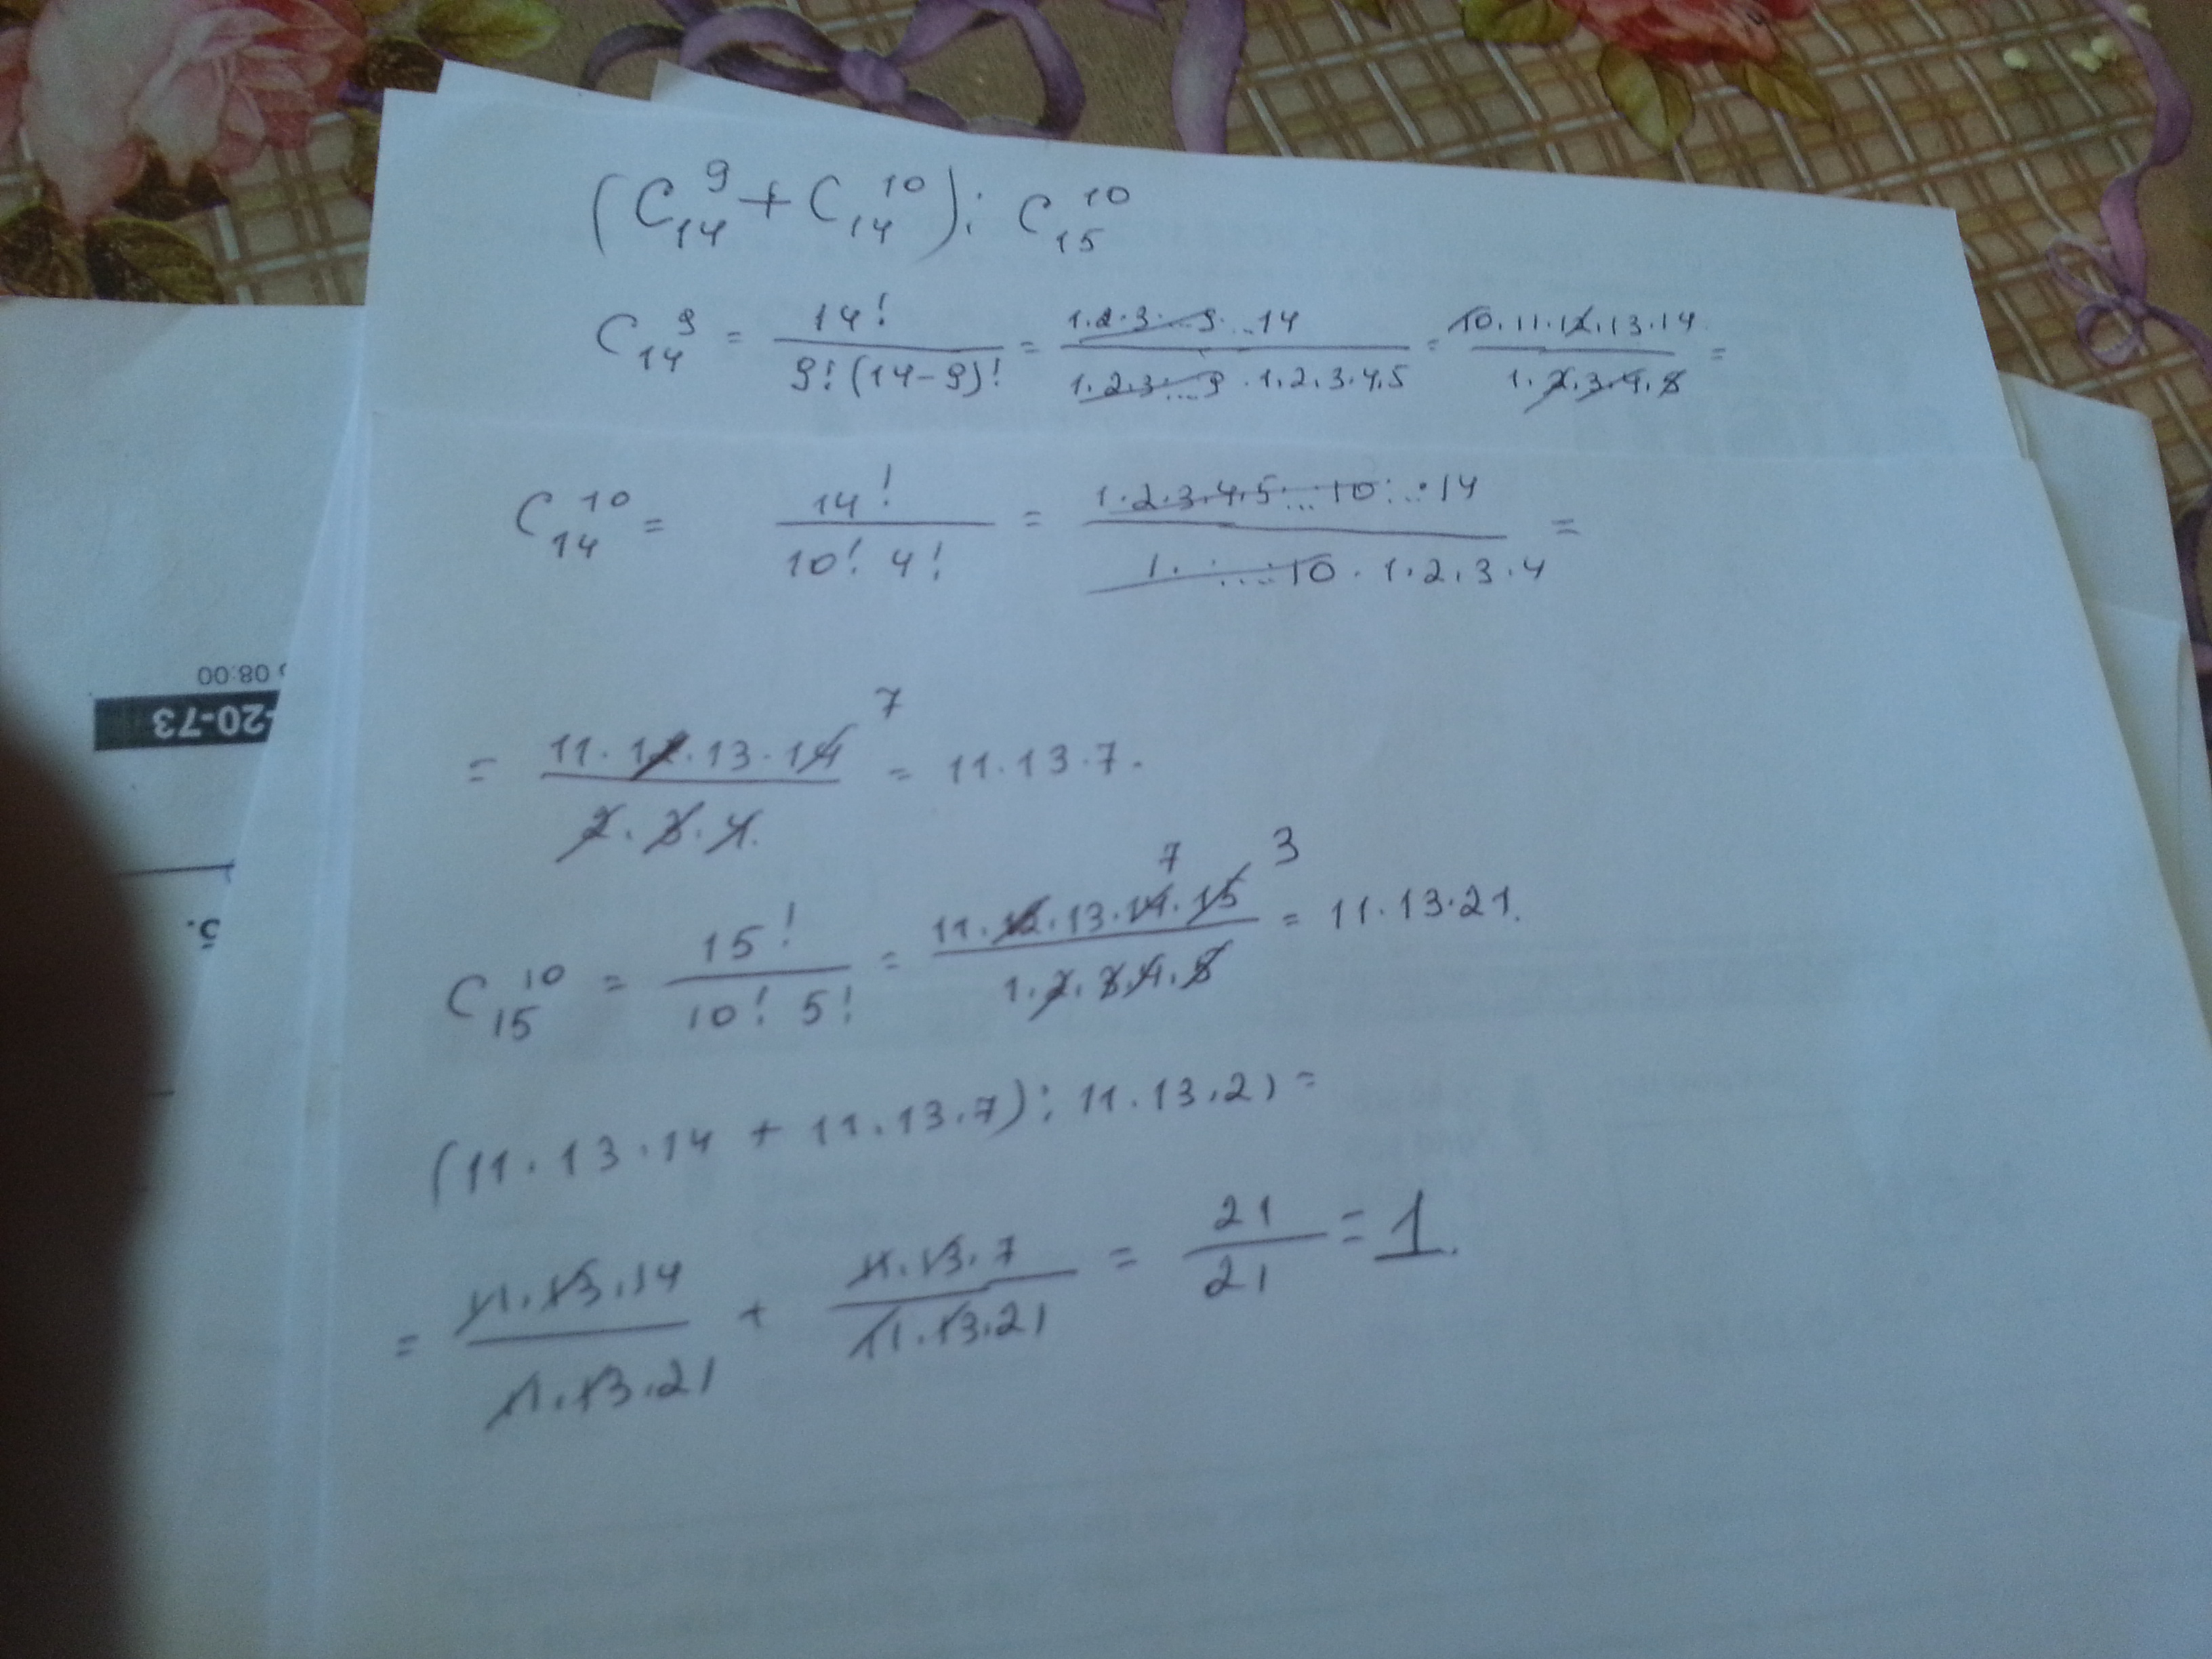 (C₁₄⁹ + C₁₄¹⁰) : C₁₅¹⁰
C₁₄⁹ = 14! / 9! (14-9)! = 1.2.3...9...14 / 1.2.3...9 . 1.2.3.4.5 = 10.11.12.13.14 / 1.2.3.4.5 =
C₁₄¹⁰ = 14! / 10! 4! = 1.2.3.4.5...10...14 / 1. ...10 . 1.2.3.4 =
7
= 11.12.13.14 / 2.3.4. = 11.13.7.
7 3
C₁₅¹⁰ = 15! / 10! 5! = 11.12.13.14.15 / 1.2.3.4.5 = 11.13.21.
(11.13.14 + 11.13.7) : 11.13.21 =
= 11.13.14 / 11.13.21 + 11.13.7 / 11.13.21 = 21 / 21 = 1.
08:00
-20-73
5.